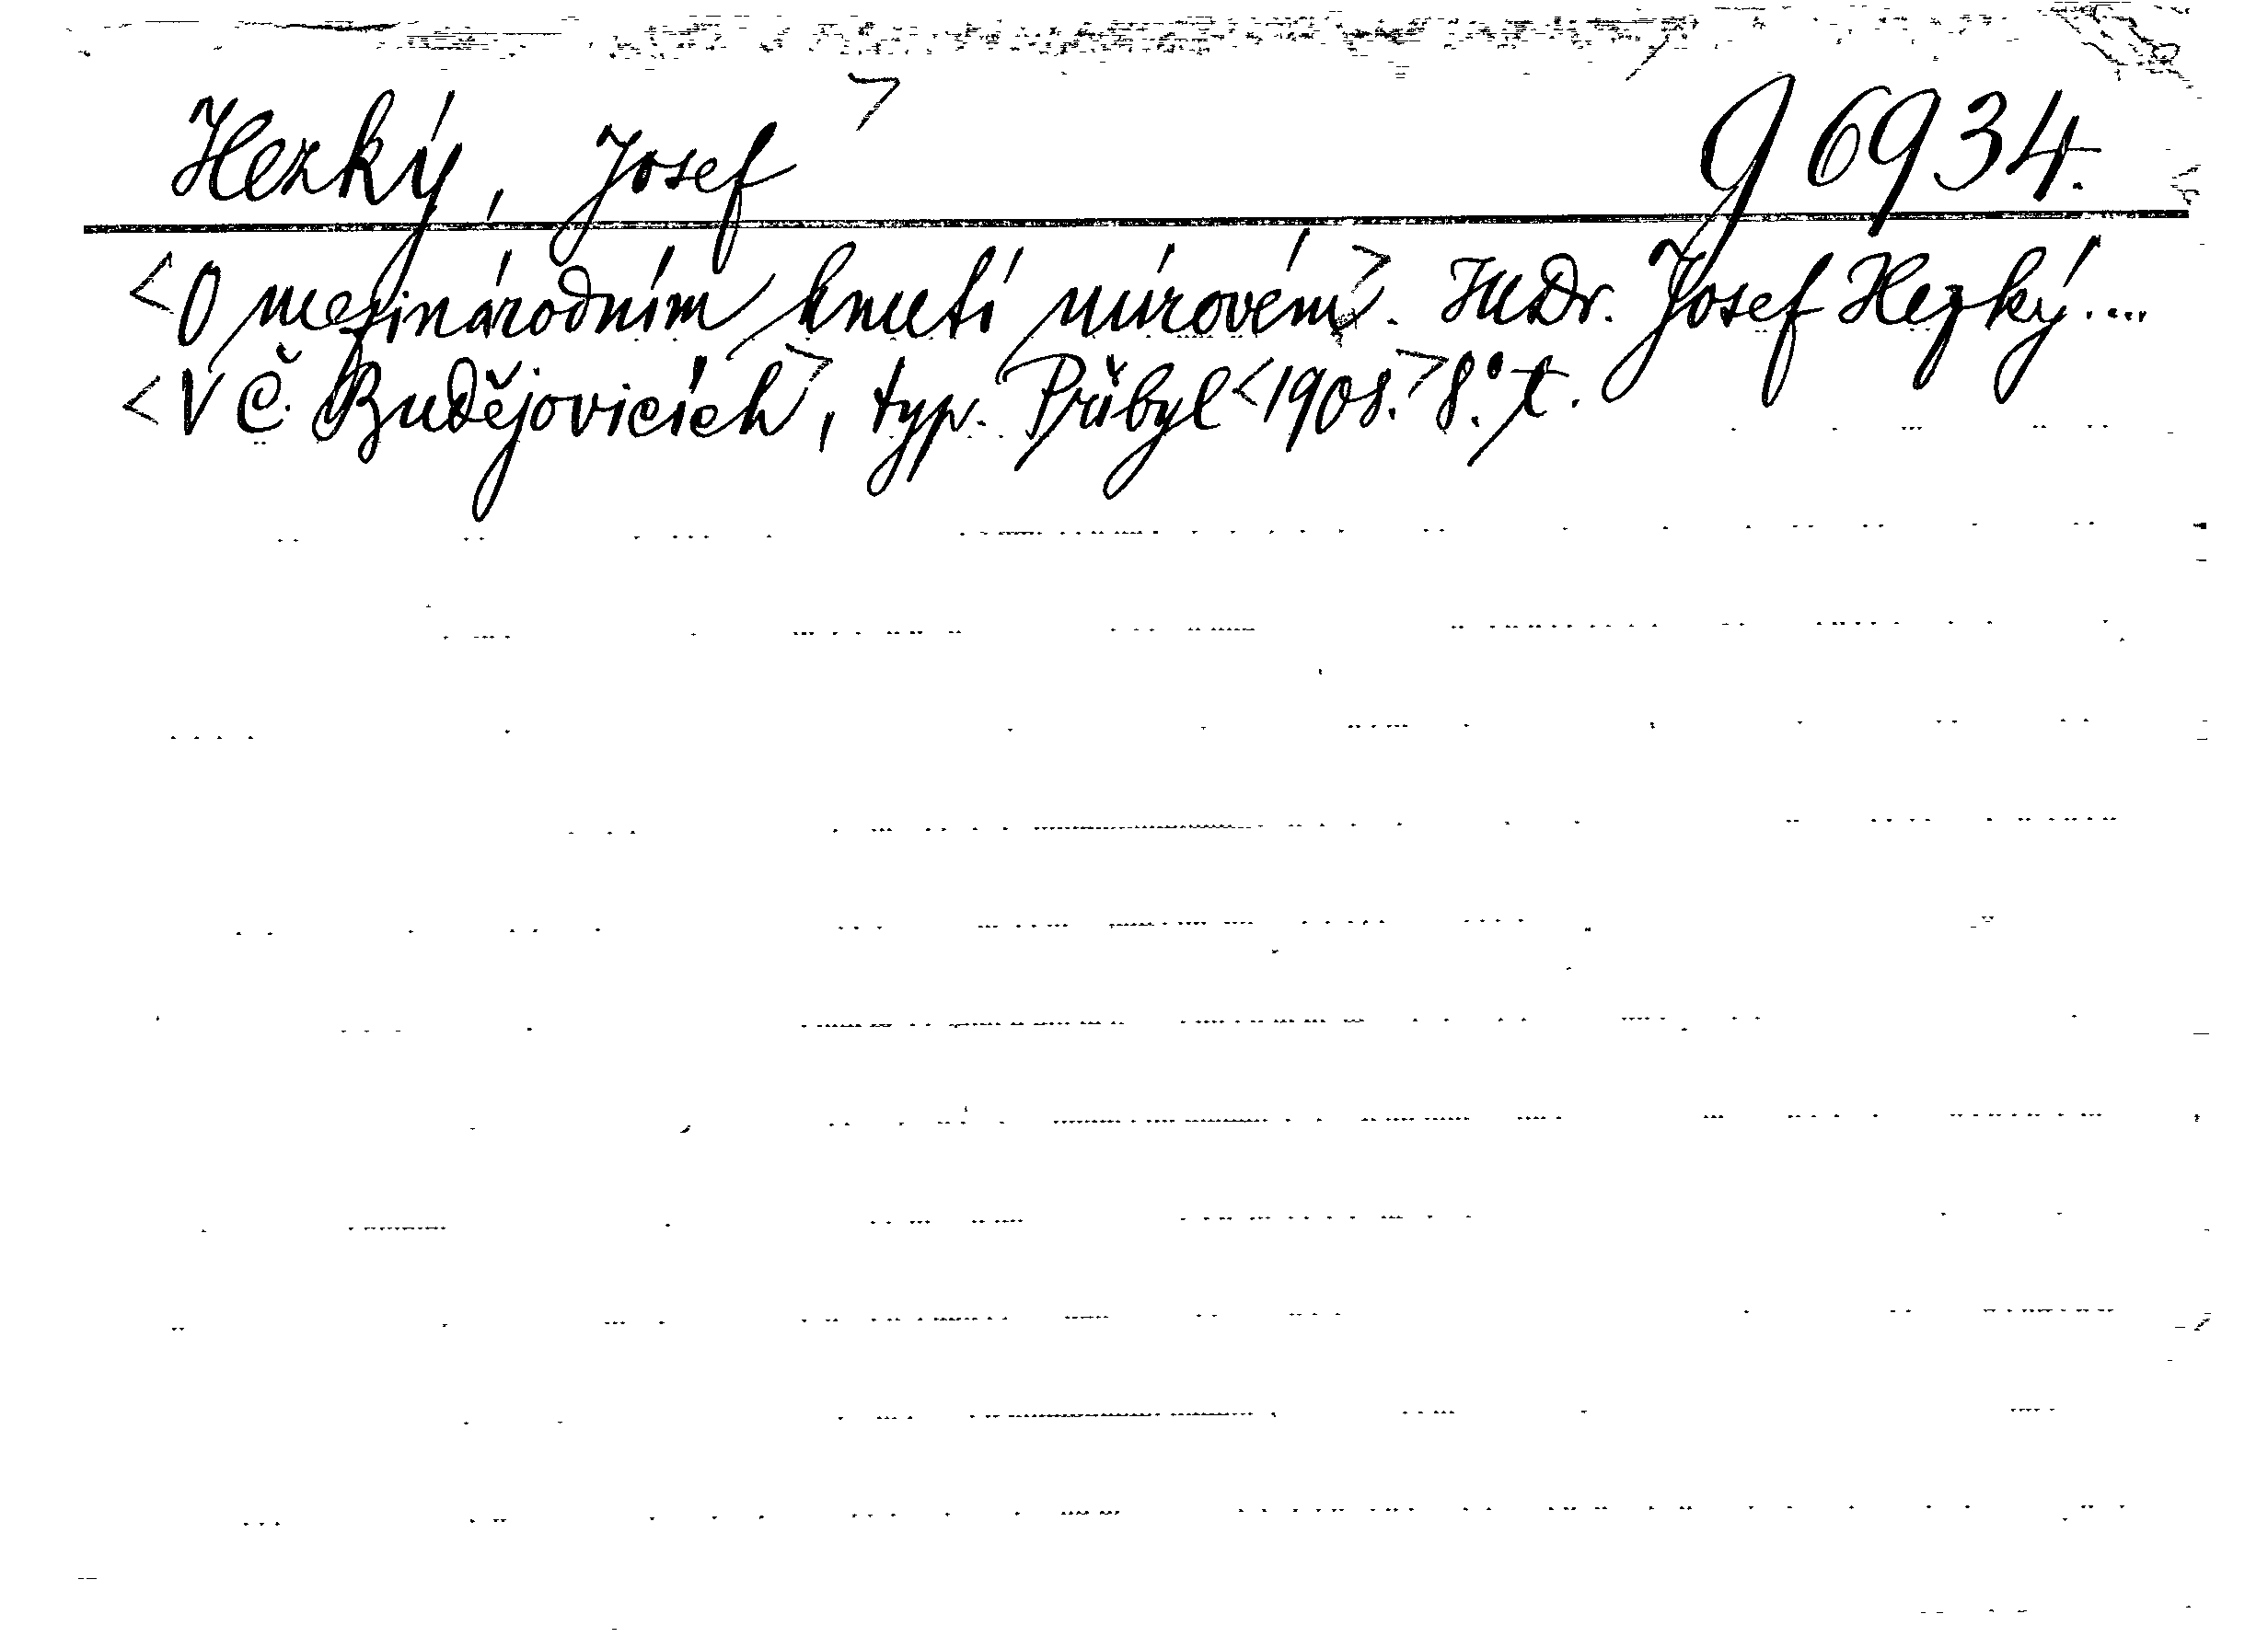 Hezký, Josef> g 6934.
<O mezinárodním hnutí mírovém>. JUDr. Josef Hezký....
<V Č. Budějovicích>, typ. Přibyl <1908.> 8.° t.